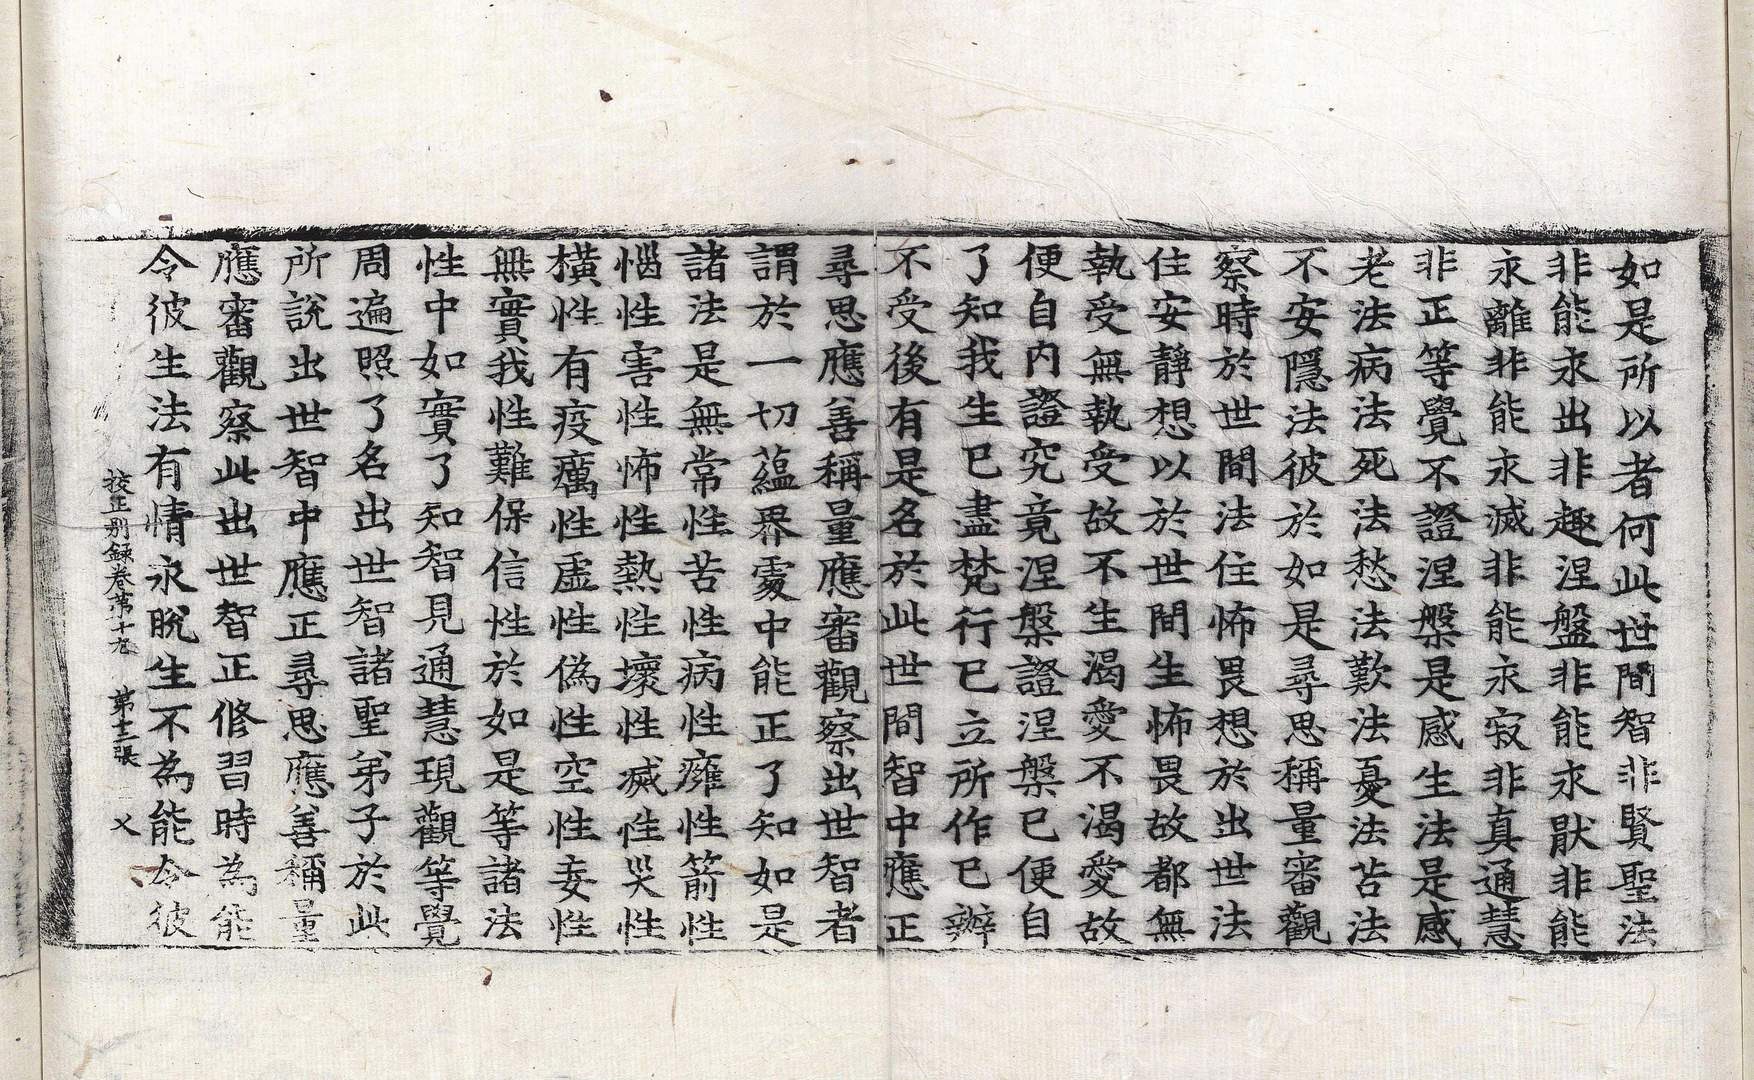 如是所以者何此世間智非賢聖法
非能永出非趣涅盤非能永猒非能
永離非能永滅非能永寂非真通慧
非正等覺不證涅槃是感生法是感
老法病法死法愁法歎法憂法苦法
不安隱法彼於如是尋思稱量審觀
察時於世間法住怖畏想於出世法
住安靜想以於世間生怖畏故都無
執受無執受故不生渴愛不渴愛故
便自內證究竟涅槃證涅槃已便自
了知我生已盡梵行已立所作已辦
不受後有是名於此世間智中應正
尋思應善稱量應審觀察出世智者
謂於一切蘊界處中能正了知如是
諸法是無常性苦性病性癰性箭性
惱性害性怖性熱性壞性滅性哭性
橫性有疫癘性虛性偽性空性妄性
無實我性難保信性於如是等諸法
性中如實了知智見通慧現觀等覺
周遍照了名出世智諸聖弟子於此
所說出世智中應正尋思應善稱量
應審觀察此出世智正修習時為能
令彼生法有情永脫生不為能令彼
挍正別錄卷第十九 第十三張 乂